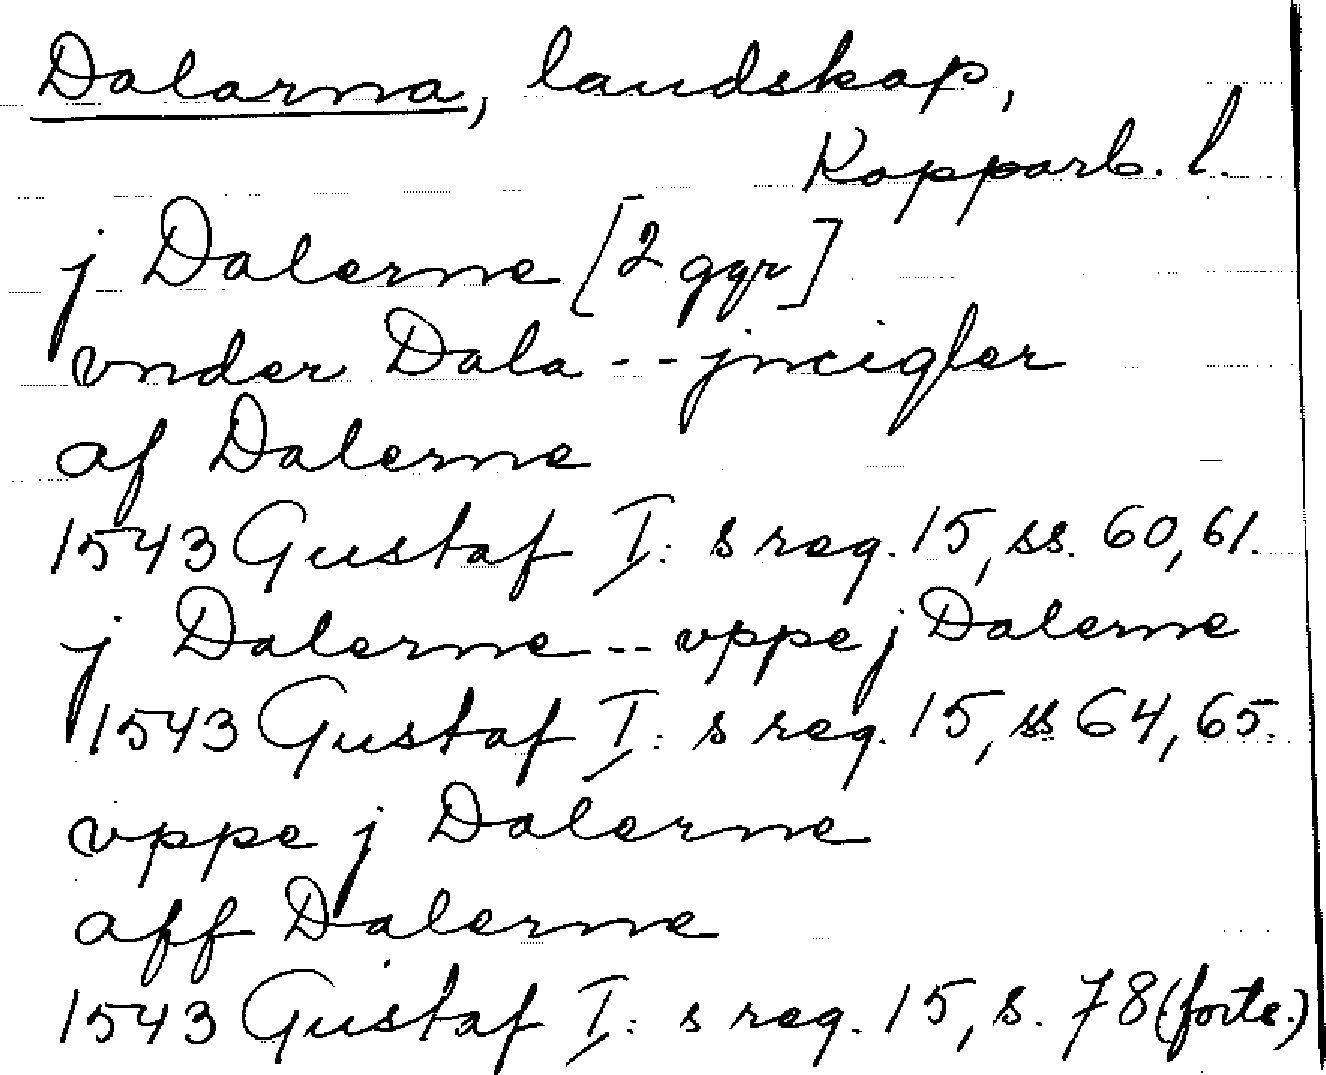 Dalarna, landskap,
Kopparb. l.
j Dalerne [2 ggr]
vnder Dala -- jncigler
af Dalerne
1543 Gustaf I: s reg. 15, ss. 60, 61.
j Dalerne -- vppe j Dalerne
1543 Gustaf I: s reg. 15, ss 64, 65.
vppe j Dalerne
aff Dalerne
1543 Gustaf I: s reg. 15, s. 78 (forts.)